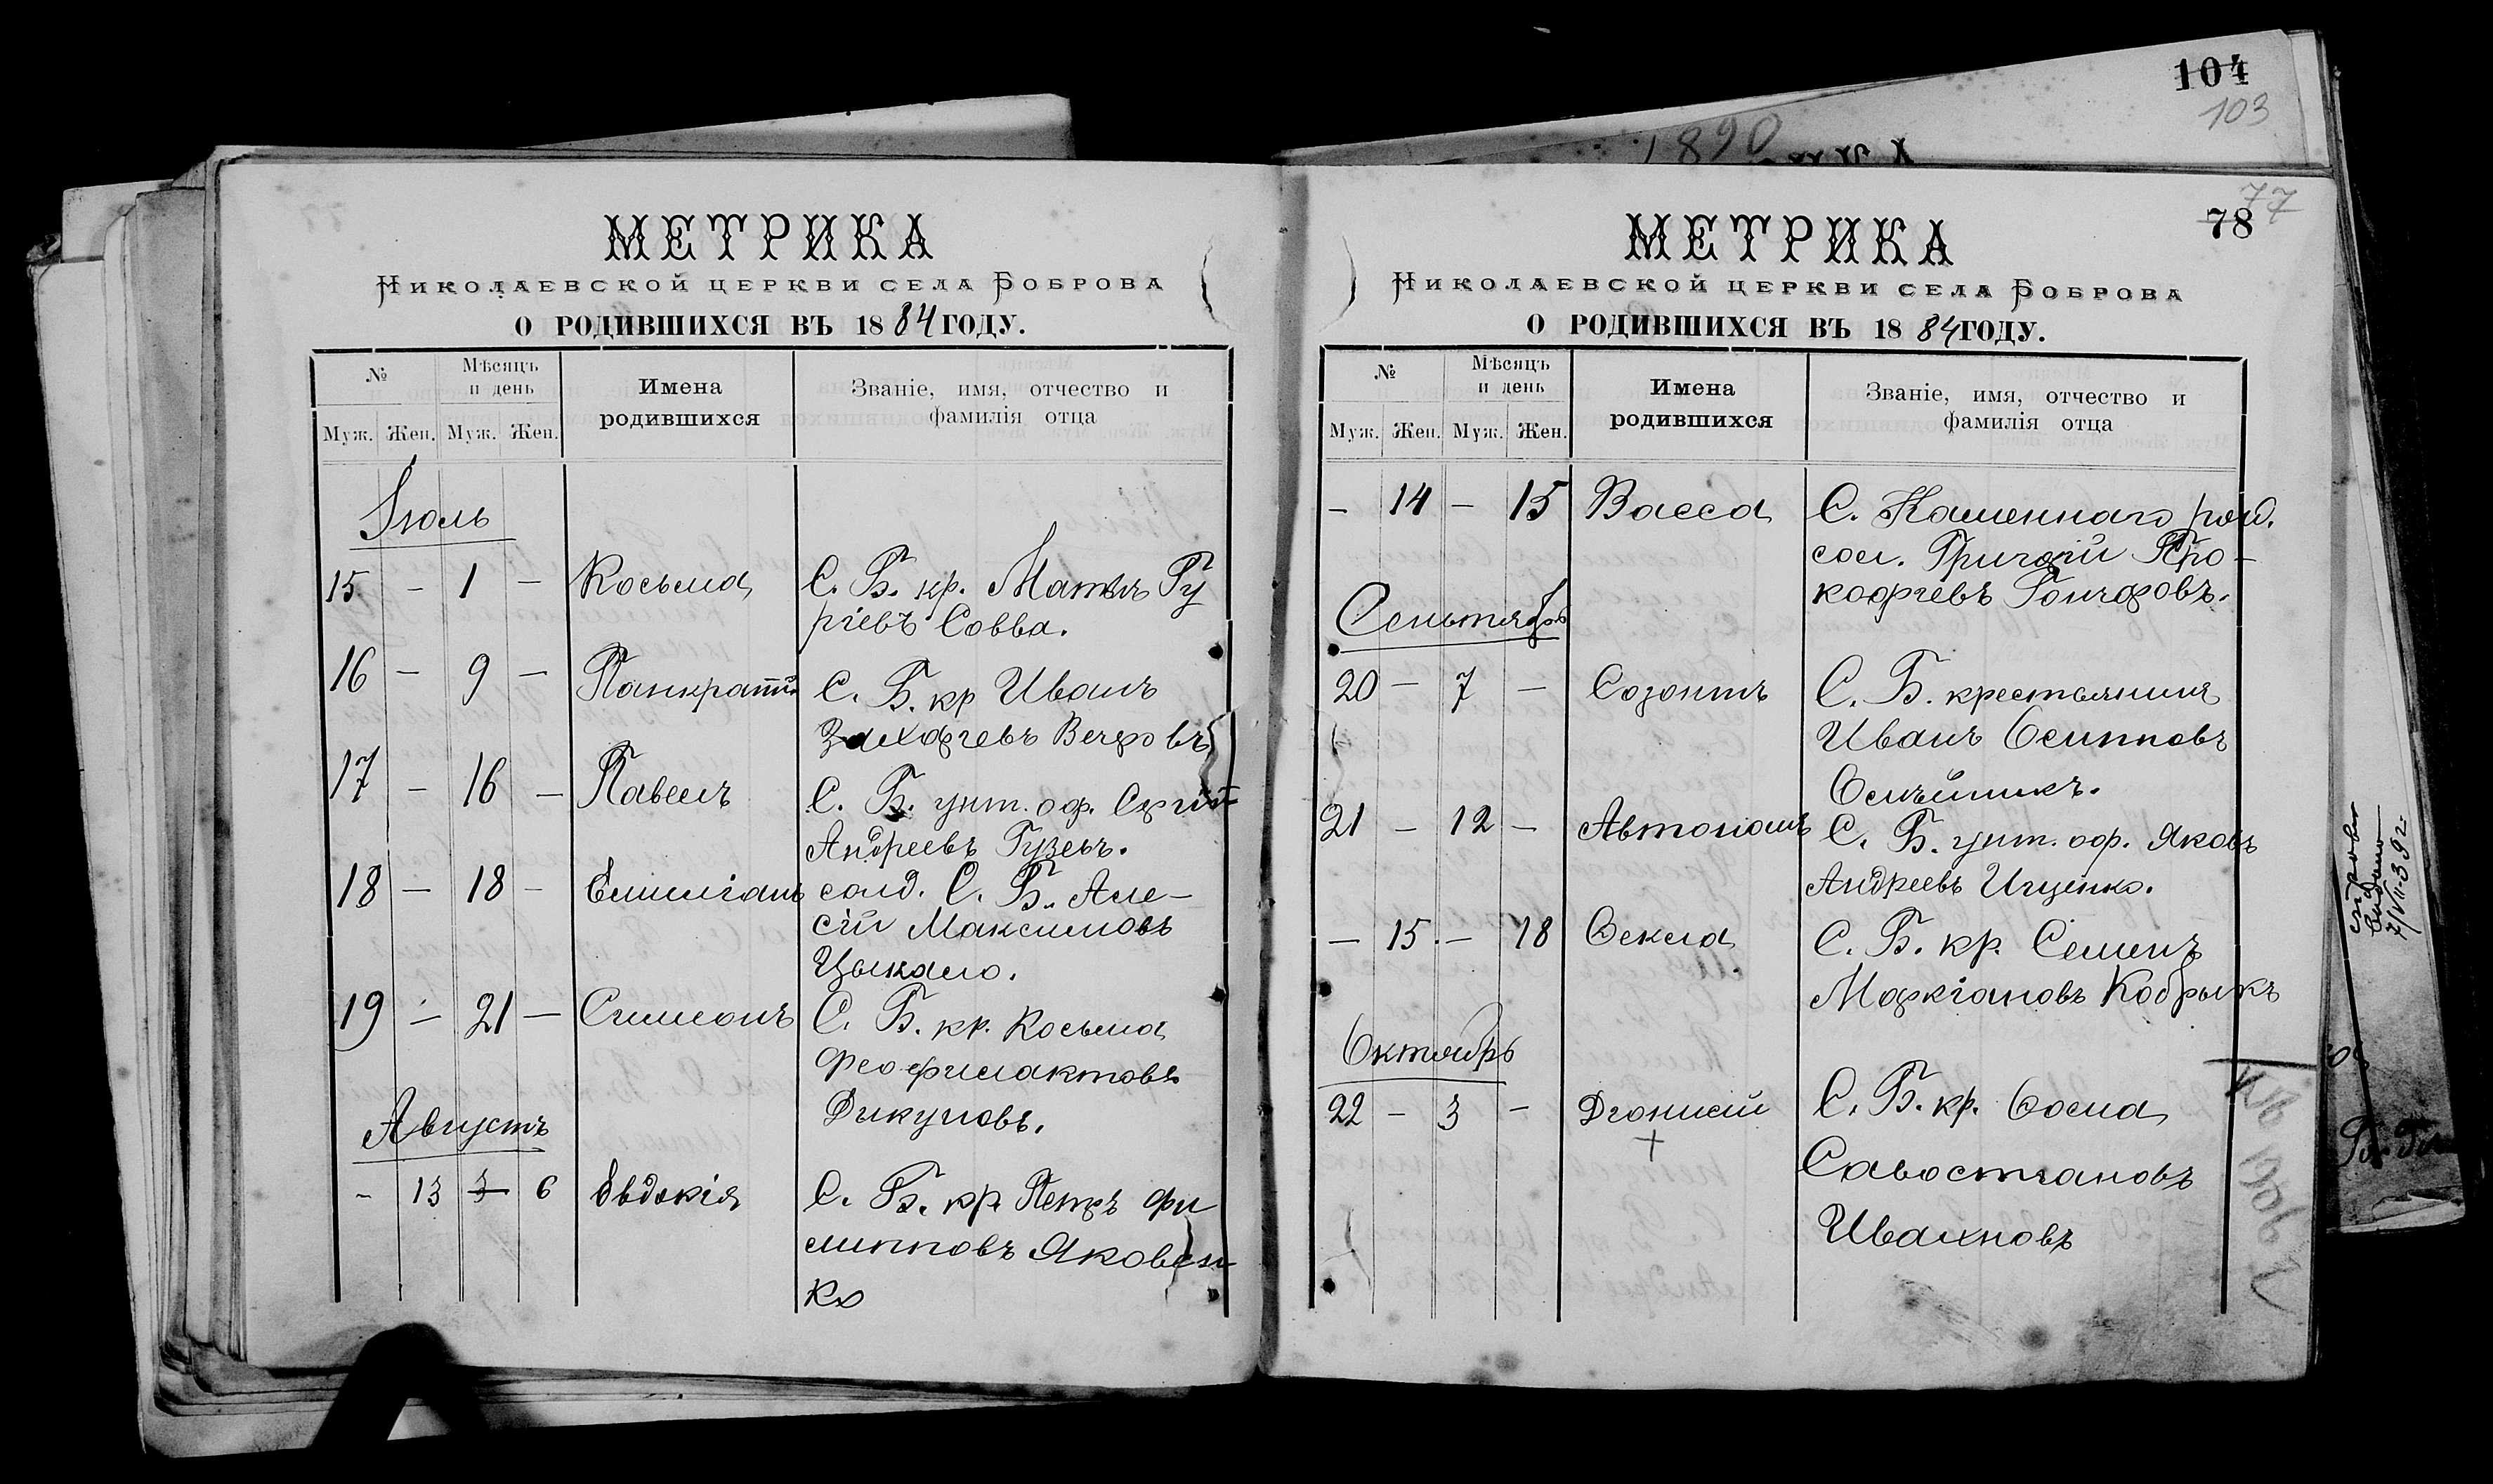 104
103
1890
МЕТРИКА
НИКОЛАЕВСКОЙ ЦЕРКВИ СЕЛА БОБРОВА
О РОДИВШИХСЯ ВЪ 1884 ГОДУ.
№
Мѣсяцъ и день
Имена родившихся
Званіе, имя, отчество и фамилія отца
Муж. Жен. Муж. Жен.
Іюль
15 - 1 - Косьма С. Б. кр. Матвѣ Гу
ріевъ Совва.
16 - 9 - Панкратій С. Б. кр Иванъ
Захаріевъ
17 - 16 - Павелъ С. Б. унт. оф. Сергій
Андреевъ Гузевъ.
18 - 18 - Емиліанъ солд. С. Б. Але-
сій Максимовъ
Цыкало.
19 - 21 - Симеонъ С. Б. кр. Косьма
Феофилактовъ
Дикуновъ.
Августъ
- 13 3 6 Евдокія С. Б. кр. Петръ Фи
липповъ Яковен-
ко
77
78
МЕТРИКА
НИКОЛАЕВСКОЙ ЦЕРКВИ СЕЛА БОБРОВА
О РОДИВШИХСЯ ВЪ 1884 ГОДУ.
№
Мѣсяцъ и день
Имена родившихся
Званіе, имя, отчество и фамилія отца
Муж. Жен. Муж. Жен.
- 14 - 15 Васса С. Каменнаго
Григорій Про-
кофіевъ Гончаровъ.
Сентябрь
20 - 7 - Созонтъ С. Б. крестьянинъ
Иванъ Осиповъ
Олѣйникъ.
21 - 12 - Автономъ С. Б. унт. оф. Яковъ
Андреевъ Ищенко.
- 15 - 18 Ѳекла С. Б. кр. Семенъ
Маркіановъ Кобрыкъ
Октябрь
22 - 3 - Діонисій С. Б. кр. Ѳома
Савостіановъ
Ивахновъ